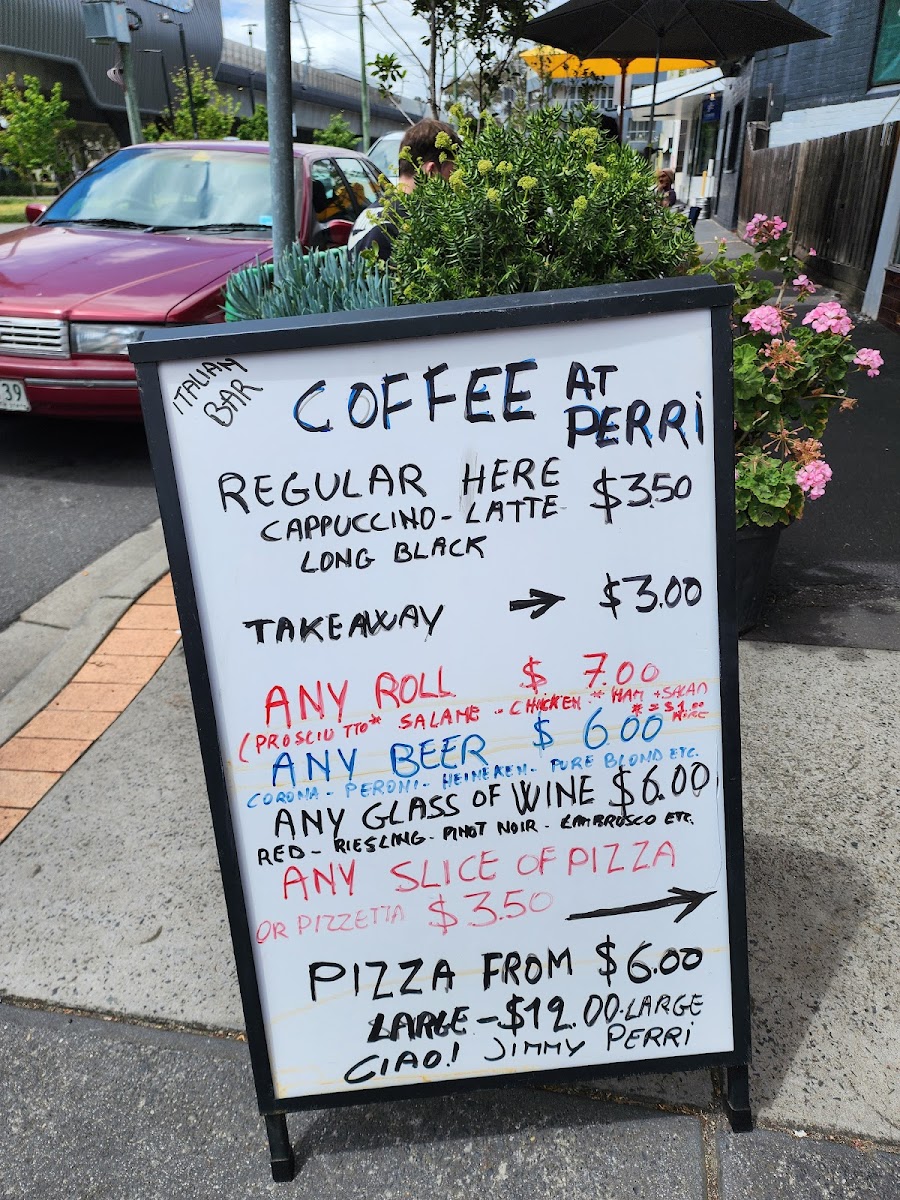 39
ITALIAN
BAR
COFFEE AT
PERRi
REGULAR HERE $3.50
CAPPUCCINO - LATTE
LONG BLACK
TAKEAWAY → $3.00
ANY ROLL $ 7.00
(PROSCIUTTO* SALAME - CHICKEN * HAM + SALAD
* = $1.00
MORE
ANY BEER $ 6.00
CORONA - PERONI - HEINEKEN - PURE BLOND ETC.
ANY GLASS OF WINE $6.00
RED - RIESLING - PINOT NOIR - LAMBRUSCO ETC.
ANY SLICE OF PIZZA
OR PIZZETTA $3.50 →
PIZZA FROM $6.00
LARGE - $12.00 - LARGE
CIAO! JIMMY PERRi